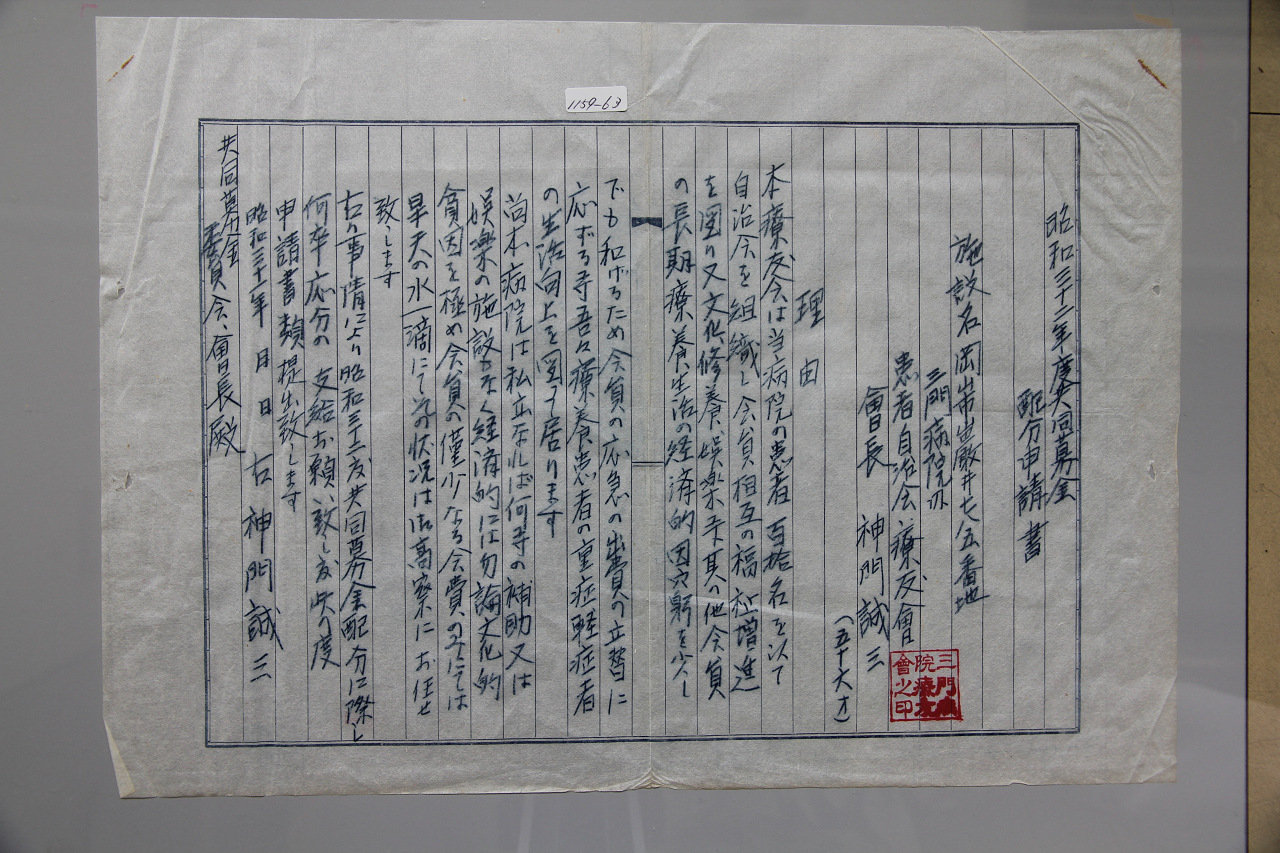 1159-63
昭和三十二年度共同募金
配分申請書
施設名 岡山市巌井七五番地
三門病院内
患者自治会療友會
會長 神門誠三
(五十六才)
三門病院療友會之印
理由
本療友会は当病院の患者百拾名を以て
自治会を組織し会員相互の福祉増進
を図り又文化修養娯楽等其の他会員
の長期療養生活の経済的困窮を少し
でも和げるため会員の応急の出費の立替に
応ずる等吾々療養患者の重症軽症者
の生活向上を図って居ります
尚本病院は私立なれば何等の補助又は
娯楽の施設もなく経済的には勿論文化的
貧困を極め会員の僅少なる会費のみにては
旱天の水一滴にてその状況は御高察にお任せ
致します
右の事情により昭和三十二度共同募金配分に際し
何卒応分の支給お願い致し度此の度
申請書類提出致します
昭和三十年 月 日 右 神門誠三
共同募金
委員会、會長殿